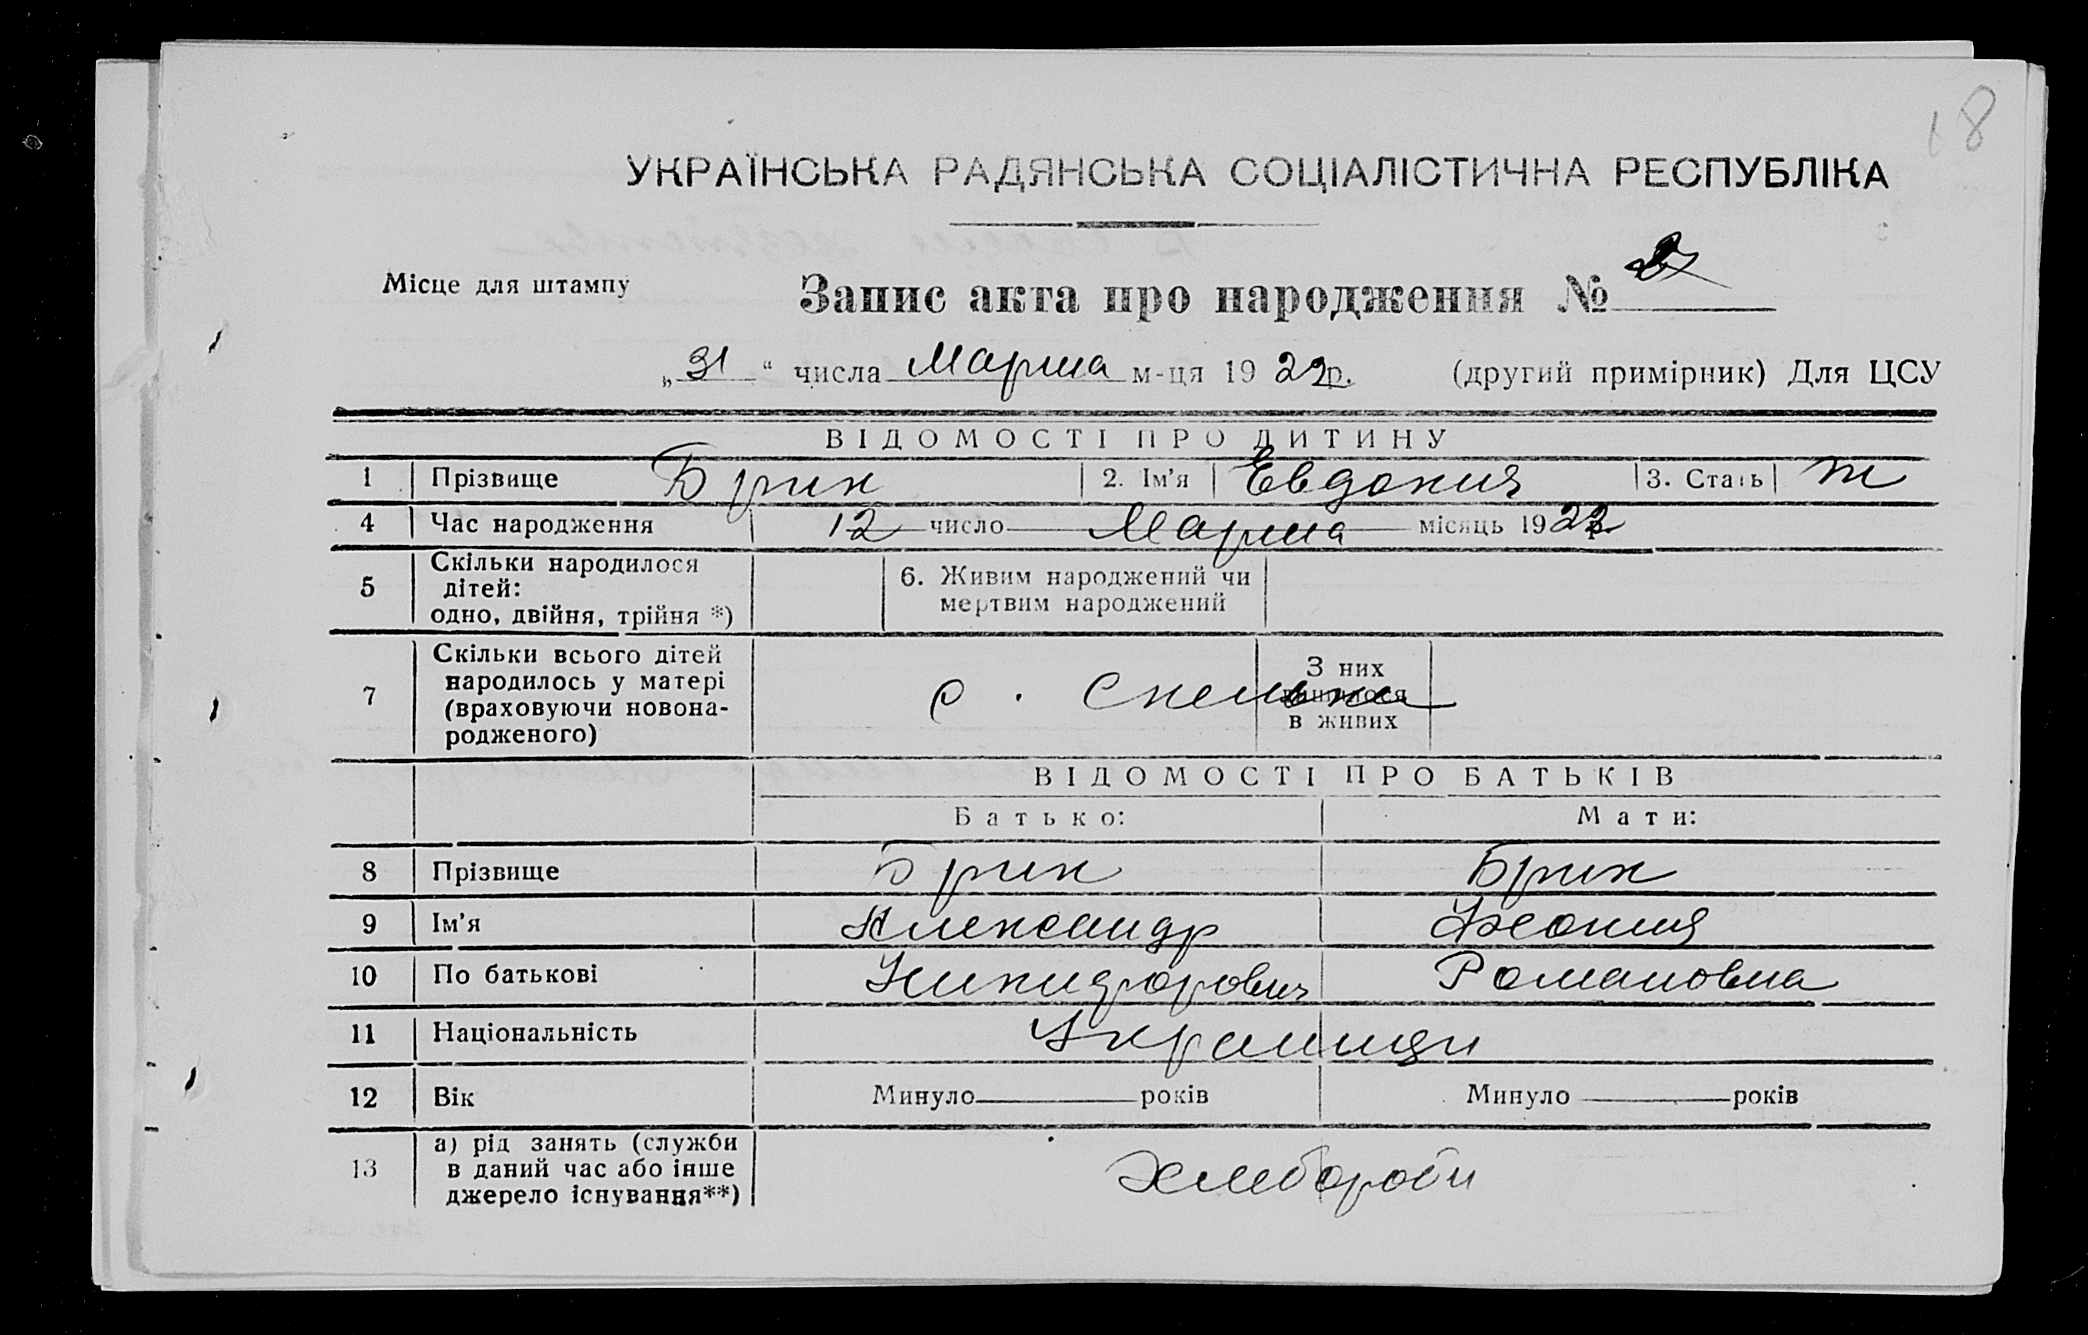 18
УКРАЇНСЬКА РАДЯНСЬКА СОЦІАЛІСТИЧНА РЕСПУБЛІКА
Місце для штампу
Запис акта про народження №
„31“ числа Марта м-ця 1922р. (другий примірник) Для ЦСУ
ВІДОМОСТІ ПРО ДИТИНУ
1 Прізвище Брик 2. Ім’я Евдокия 3. Стать ж
4 Час народження 12 число Марта місяць 1922
5 Скільки народилося дітей: одно, двійня, трійня *) 6. Живим народжений чи мертвим народжений
7 Скільки всього дітей народилось у матері (враховуючи новонародженого) с. З них в живих
ВІДОМОСТІ ПРО БАТЬКІВ
Батько: Мати:
8 Прізвище Брик Брик
9 Ім’я Александр
10 По батькові Никифорович Романовна
11 Національність Украинци
12 Вік Минуло років Минуло років
13 а) рід занять (служби в даний час або інше джерело існування**) Хлебороби